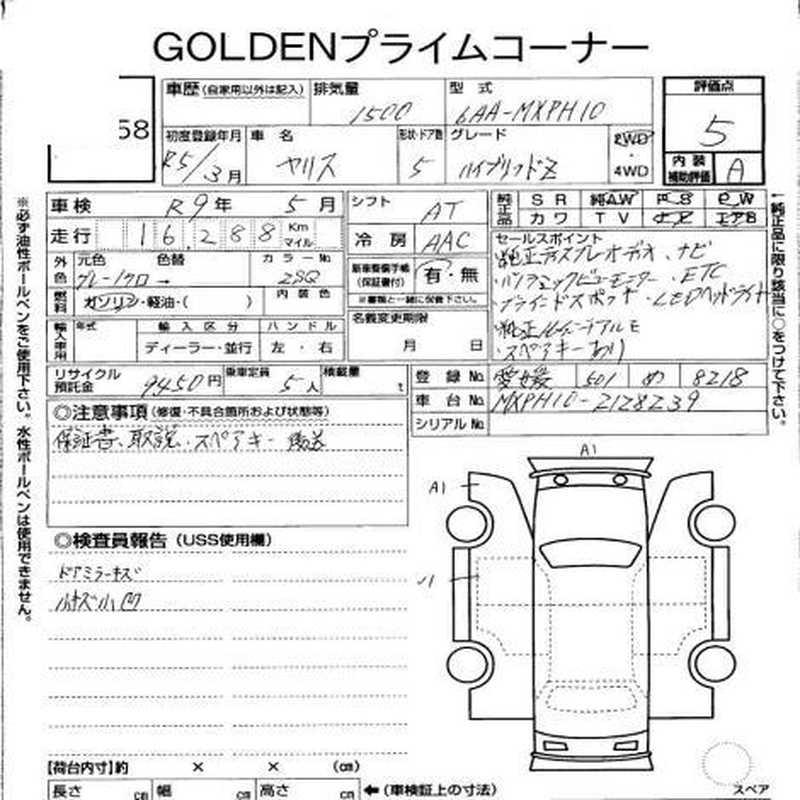 GOLDENプライムコーナー
58
車歴 (自家用以外は記入)
排気量 1500
型式 6AA-MXPH10
評価点 5
初度登録年月 R5/3月
車名 ヤリス
形状・ドア数 5
グレード ハイブリッドZ
2WD・4WD
内装補助評価 A
車検 R9年 5月
シフト AT
純正品 SR 純AW PS PW
カワ TV ナビ エアB
走行 16,288 Km マイル
冷房 AAC
セールスポイント
・純正ディスプレイオーディオ、ナビ
・パノラミックビューモニター・ETC
・ブラインドスポット・LEDヘッドライト
・純正アルミ
・スペアキーあり
外色 元色 色替 カラーNo
グレー/クロ→ 2SQ
新車整備手帳(保証書付) 有・無
※書類と一緒に保管下さい。
燃料 ガソリン・軽油・( ) 内装色
名義変更期限
月 日
輸入車用 年式 輸入区分 ハンドル
ディーラー・並行 左・右
リサイクル預託金 9450円
乗車定員 5人
積載量 t
登録No. 愛媛 501 め 8218
車台No. MXPH10-2128239
シリアルNo.
◎注意事項 (修復・不具合箇所および状態等)
保証書、取説・スペアキー 後送
◎検査員報告 (USS使用欄)
ドアミラーキズ
小キズ小凹
A1
A1
【荷台内寸】約 × × (cm)
長さ cm 幅 cm 高さ cm ←(車検証上の寸法)
スペア
※必ず油性ボールペンをご使用下さい。水性ボールペンは使用できません。
←純正品に限り該当に○をつけて下さい。